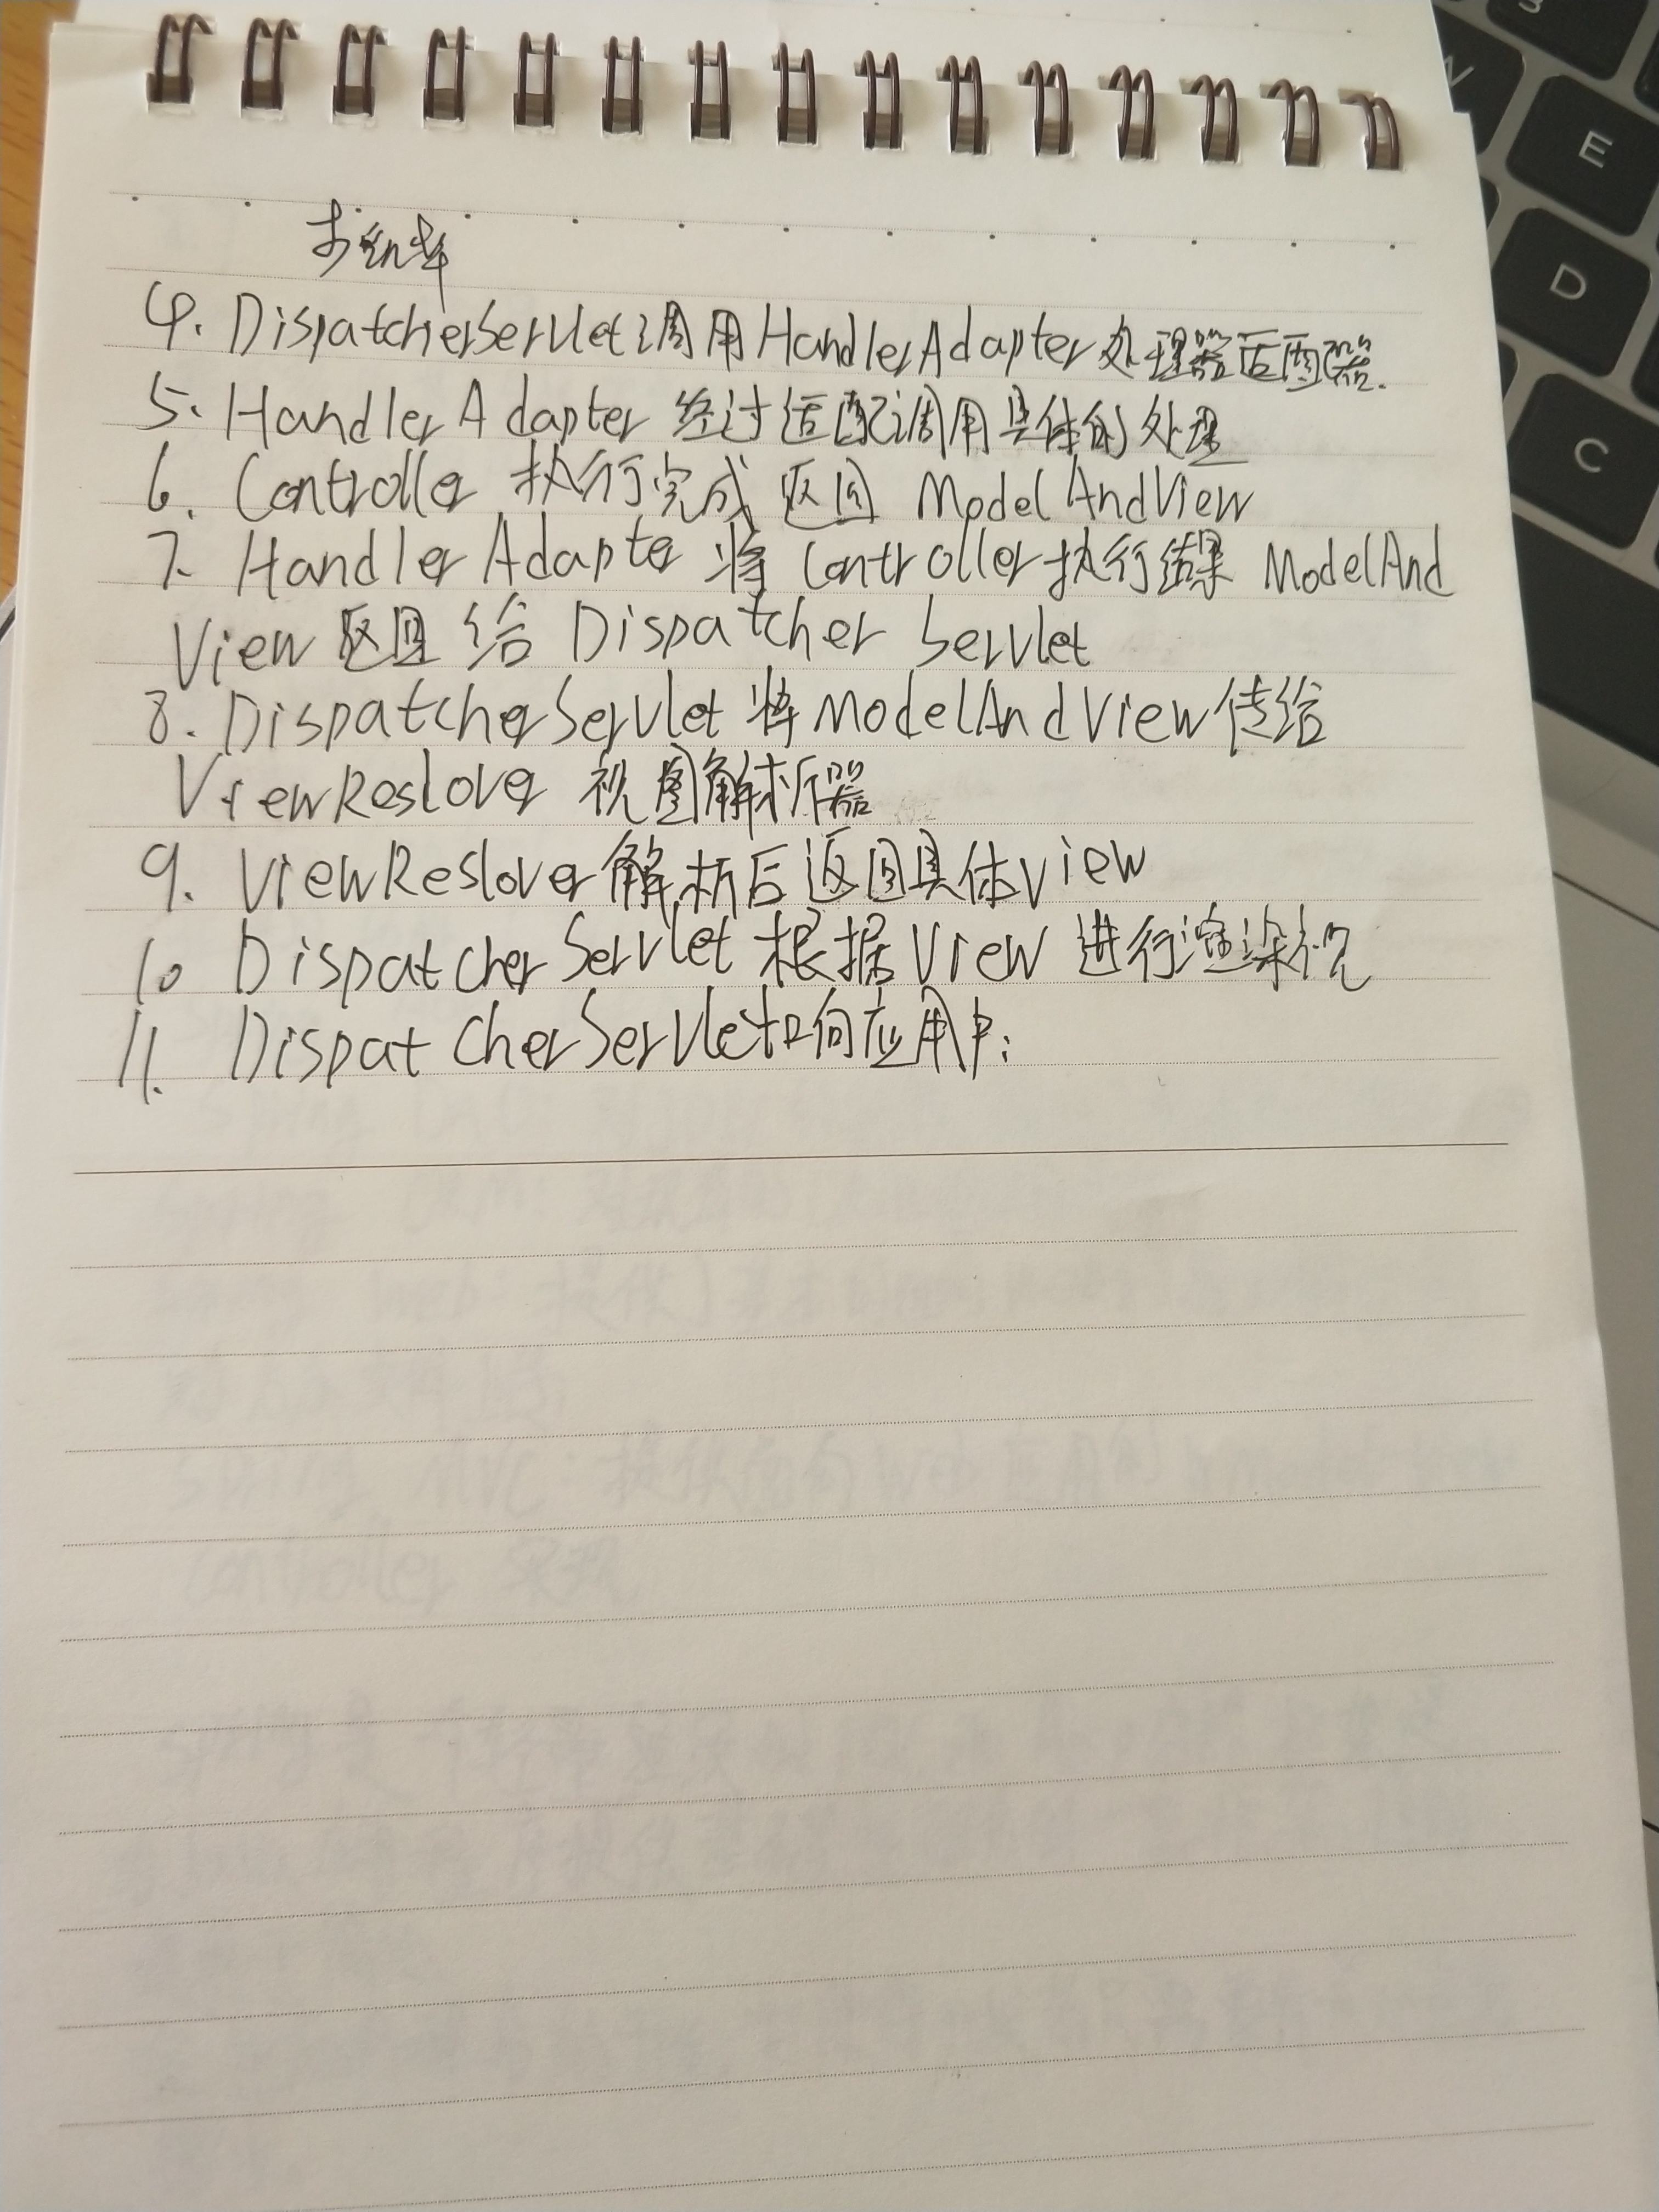 4. DispatcherServlet调用HandlerAdapter处理器适配器.
5. HandlerAdapter 经过适配调用具体的处理
6. Controller 执行完成 返回 ModelAndView
7. HandlerAdapter 将 Controller执行结果 ModelAnd
View 返回 给 DispatcherServlet
8. DispatcherServlet 将ModelAndView传给
ViewReslover 视图解析器
9. ViewReslover解析后返回具体View
10 DispatcherServlet 根据View 进行渲染视
11. DispatcherServlet响应用户;
E
D
C